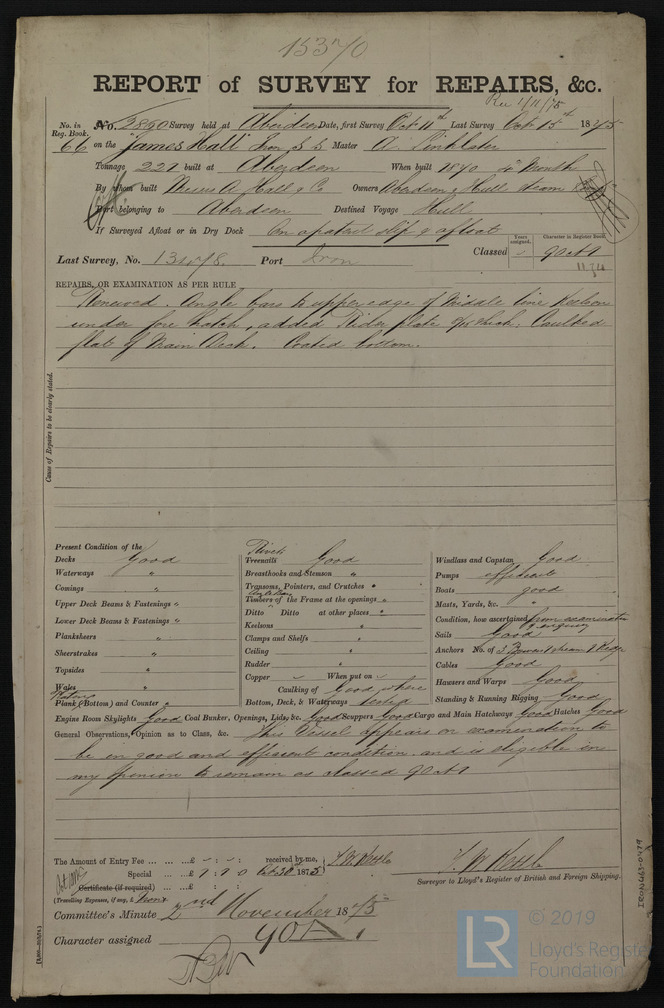 15370
REPORT of SURVEY for REPAIRS, &c.
Rec 1/11/75
No. in Reg. Book. No. 2890 Survey held at Aberdeen Date, first Survey Oct 11th Last Survey Oct 15th 1875
66 on the "James Hall" Iron S.S. Master A. Tinklater
Tonnage 227 built at Aberdeen When built 1870 4 Month
By whom built Messrs A Hall & Co Owners Aberdeen & Hull Steam
Port belonging to Aberdeen Destined Voyage Hull
If Surveyed Afloat or in Dry Dock On a patent slip & afloat
Years assigned. Character in Register Book.
Last Survey, No. Port Iron Classed 90A1
11,74
REPAIRS, OR EXAMINATION AS PER RULE
Renewed. Angle bars to upper edge of Middle line Keelson
under fore hatch, added Rider plate thick. Caulked
flat of Main Deck. Coated bottom.
Cause of Repairs to be clearly stated.
Present Condition of the
Decks Good
Waterways "
Comings "
Upper Deck Beams & Fastenings "
Lower Deck Beams & Fastenings "
Planksheers "
Sheerstrakes "
Topsides "
Wales "
Plank (Bottom) and Counter "
Rivets
Treenails Good
Breasthooks and Stemson "
Transoms, Pointers, and Crutches "
Timbers of the Frame at the openings "
Ditto Ditto at other places "
Keelsons "
Clamps and Shelfs "
Ceiling "
Rudder "
Copper - When put on -
Caulking of Good where
Bottom, Deck, & Waterways tested
Windlass and Capstan Good
Pumps efficient
Boats good
Masts, Yards, &c. "
Condition, how ascertained from examination
& enquiry
Sails Good
Anchors No. of 3 Bower 1 Stream 1 Kedge
Cables Good
Hawsers and Warps Good
Standing & Running Rigging Good
Engine Room Skylights Good Coal Bunker, Openings, Lids, &c. Good Scuppers Good Cargo and Main Hatchways Good Hatches Good
General Observations, Opinion as to Class, &c. This Vessel appears on examination to
be in good and efficient condition and is eligible in
my opinion to remain as classed 90A1
The Amount of Entry Fee ... ... £ - : - : received by me,
Special ... ... £ 1 . 1 . 0 Oct 30 1875
Certificate (if required) ... £ : :
(Travelling Expenses, if any, £ None
Surveyor to Lloyd's Register of British and Foreign Shipping.
Committee's Minute 2nd November 1875
Character assigned 90A1
IRON463-0479
© 2019
LR
Lloyd's Register
Foundation